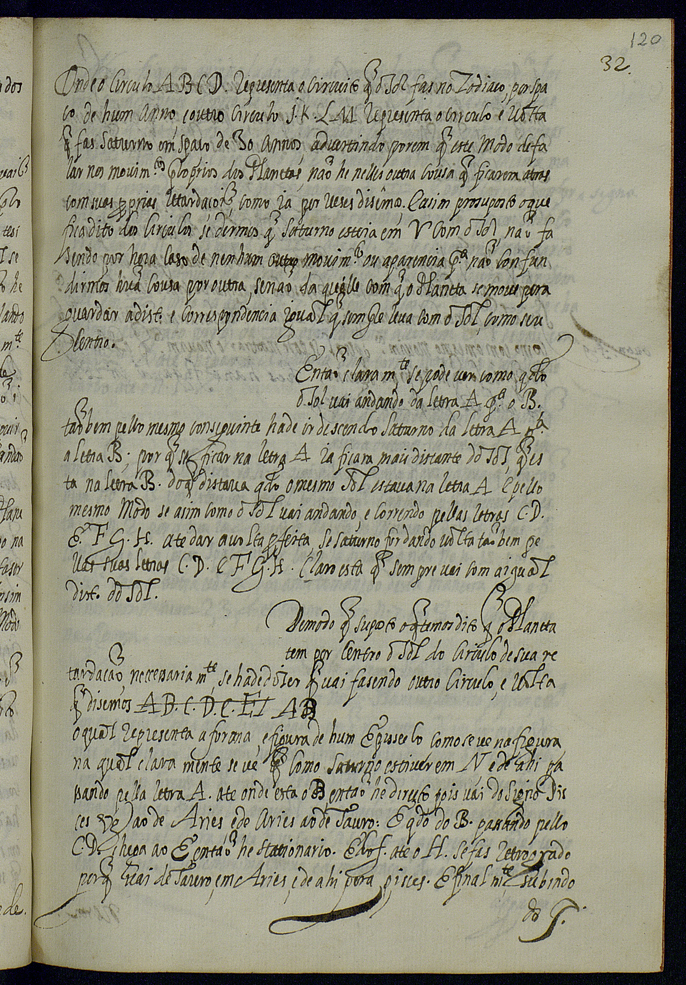 120
32.
Onde o Circulo A B C D. Representa o Circuito q̃ o Sol fas no Zodiaco, por spa
ço de hum Anno, e outro Circulo I. K. L M. Representa o circulo e Uolta
q̃ fas Saturno em spaço de 30 Annos, advertindo porem q̃ este Modo de fa
lar nos movim.tos proprios dos Planetas não he nelles outra Cousa q̃ ficarem atras
com suas proprias retardaçois, como ia por veses disemos. E asim prosuposto o que
fica dito dos Circulos se dermos q̃ Saturno esteia em V com o Sol não fa
sendo por hora Caso de nenhum outro movim.to ou aparencia p.a não confun
dirmos huã Cousa por outra, senão da quelle com q̃ o Planeta se move pera
guardar a dist.a e Correspondencia igual q̃ sempre leva com o Sol como seu
Centro.
Então clara m.te se pode ver como q.do
o Sol vai andando da letra A p.a o B.
tambem pello mesmo conseguinte hade ir descendo Saturno da letra A p.a
a letra B. por q̃ se ficar na letra A ia ficara mais distante do Sol q̃ es
ta na letra B. do q̃ distava q.do o mesmo Sol estava na letra A. E pello
mesmo Modo se asim como o Sol vai andando e Correndo pellas letras C. D.
E. F G. H. ate dar a uolta perfeita, se Saturno for dando uolta tambem pe
llas suas letras C. D. E F G. H. Claro esta q̃ sempre vai com a igual
dist.a do Sol.
De modo q̃ suposto o q̃ temos dito q̃ o Planeta
tem por Centro o Sol do Circulo de sua re
tardação necessaria m.te se hade dizer q̃ vai fasendo outro Circulo, e Uolta
q̃ disemos
o qual Representa a forma e figura de hum como se ve na figura
na qual clara mente se ve q̃ Como Saturno estiver em V e de ahi pa
sando pella letra A. ate onde esta o B então he directo pois vai do Signo Pis
ces ao de Aries e do Aries ao de Tauro. E q.do do B. pasando pello
C D. chega ao E então he Stationario. E do F. ate o H. se fas Retrogrado
porq̃ vai de Tauro em Aries, e de ahi pera pisces. E final m.te subindo
do I.